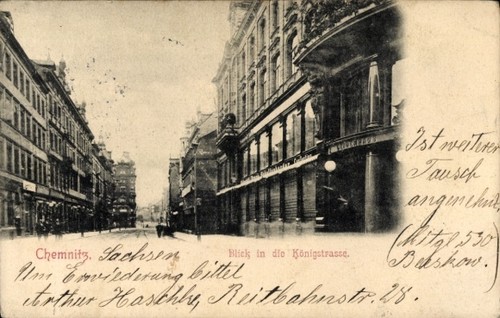 Chemnitz. Sachsen
Blick in die Königstrasse.
Um Erwiederung bittet
Arthur Haschke, Reitbahnstr. 28.
Ist weiterer
Tausch
angenehm?
(Mitgl 530
Beeskow.)